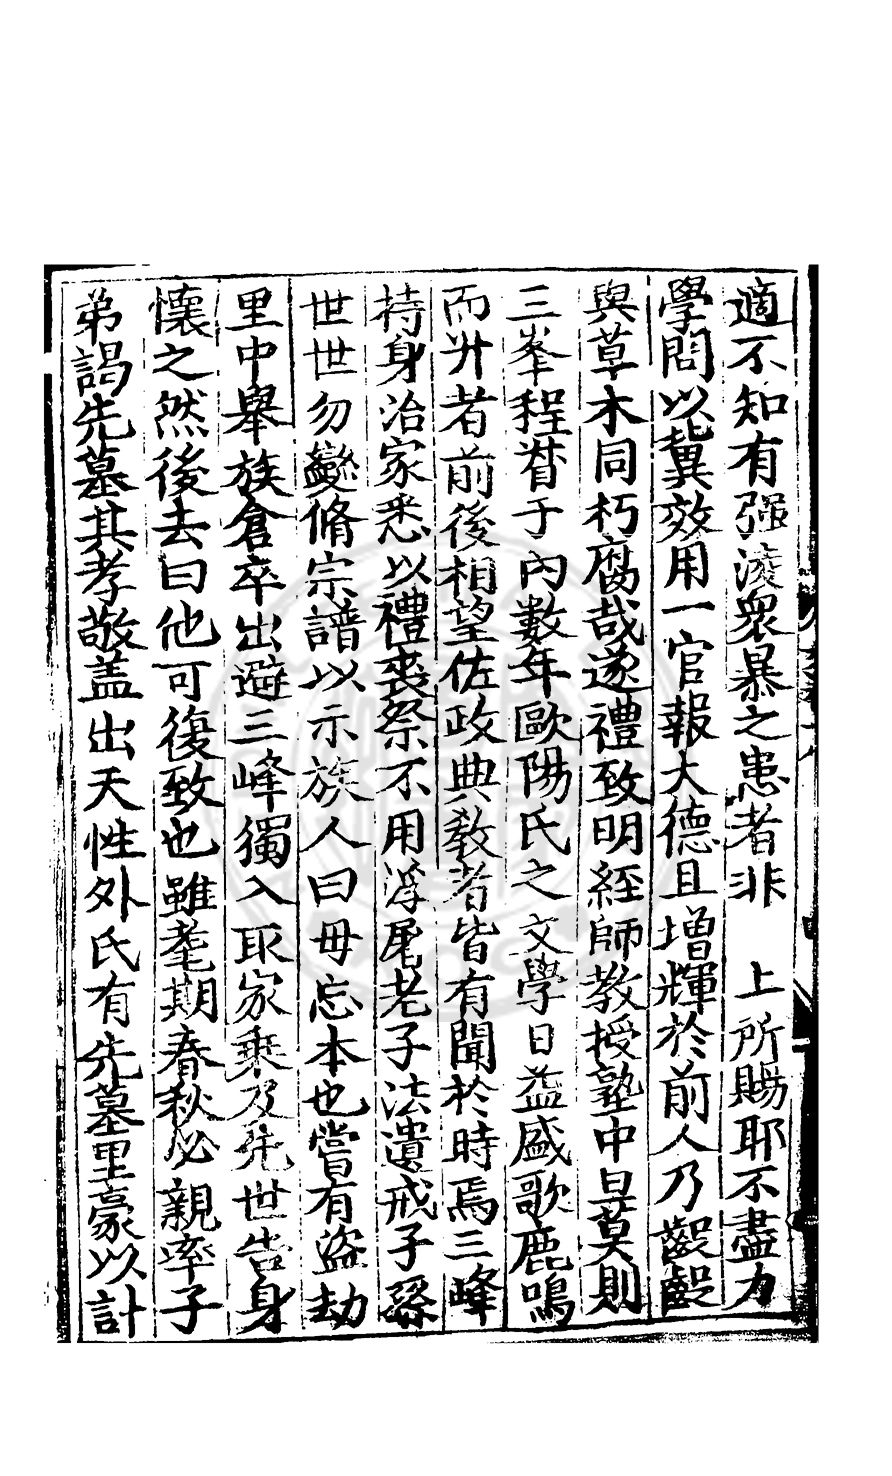 適不知有强淩衆暴之患者非　上所賜耶不盡力
學問以冀效用一官報大德且增輝於前人乃齪齪
與草木同朽腐哉遂禮致明經師教授塾中旦莫則
三峯程督于內數年歐陽氏之文學日益盛歌鹿鳴
而升者前後相望佐政典教者皆有聞於時焉三峰
持身治家悉以禮喪祭不用浮屠老子法遺戒子孫
世世勿變脩宗譜以示族人曰毋忘本也嘗有盜劫
里中舉族倉卒出避三峰獨入取家乘及先世告身
懷之然後去曰他可復致也雖耄期春秋必親率子
弟謁先墓其孝敬盖出天性外氏有先墓里豪以計